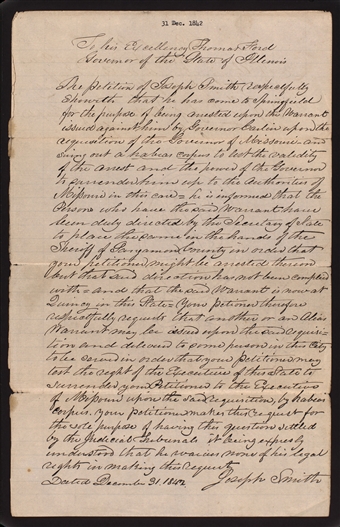 31 Dec. 1842
To his Excellency Thomas Ford
Governor of the State of Illinois
The petition of Joseph Smith, respectfully
showeth that he has come to Springfield
for the purpose of being arrested upon the Warrant
issued against him by Governor Carlin upon the
requisition of the Governor of Missouri and
suing out a habeas corpus to test the validity
of the arrest and the power of the Governor
to surrender him up to the authorities of
Missouri in this case = he is informed that the
Persons who have the said Warrant have
been duly directed by the Secretary of State
to place the same in the hands of the
Sheriff of Sangamon County in order that
your petitioner might be arrested thereon
but that said direction has not been complied
with = and that the said Warrant is now at
Quincy in this State = Your petitioner therefore
respectfully requests that another or an Alias
Warrant may be issued upon the said requisi-
tion and delivered to some person in this City
to be served in order that your petitioner may
test the right of the Executive of this State to
surrender your Petitioner to the Executive
of Missouri upon the said requisition, by habeas
corpus. Your petitioner makes this request for
the sole purpose of having this question settled
by the Judicial Tribunals it being expressly
understood that he waives none of his legal
rights in making this request
Dated December 31. 1842 Joseph Smith